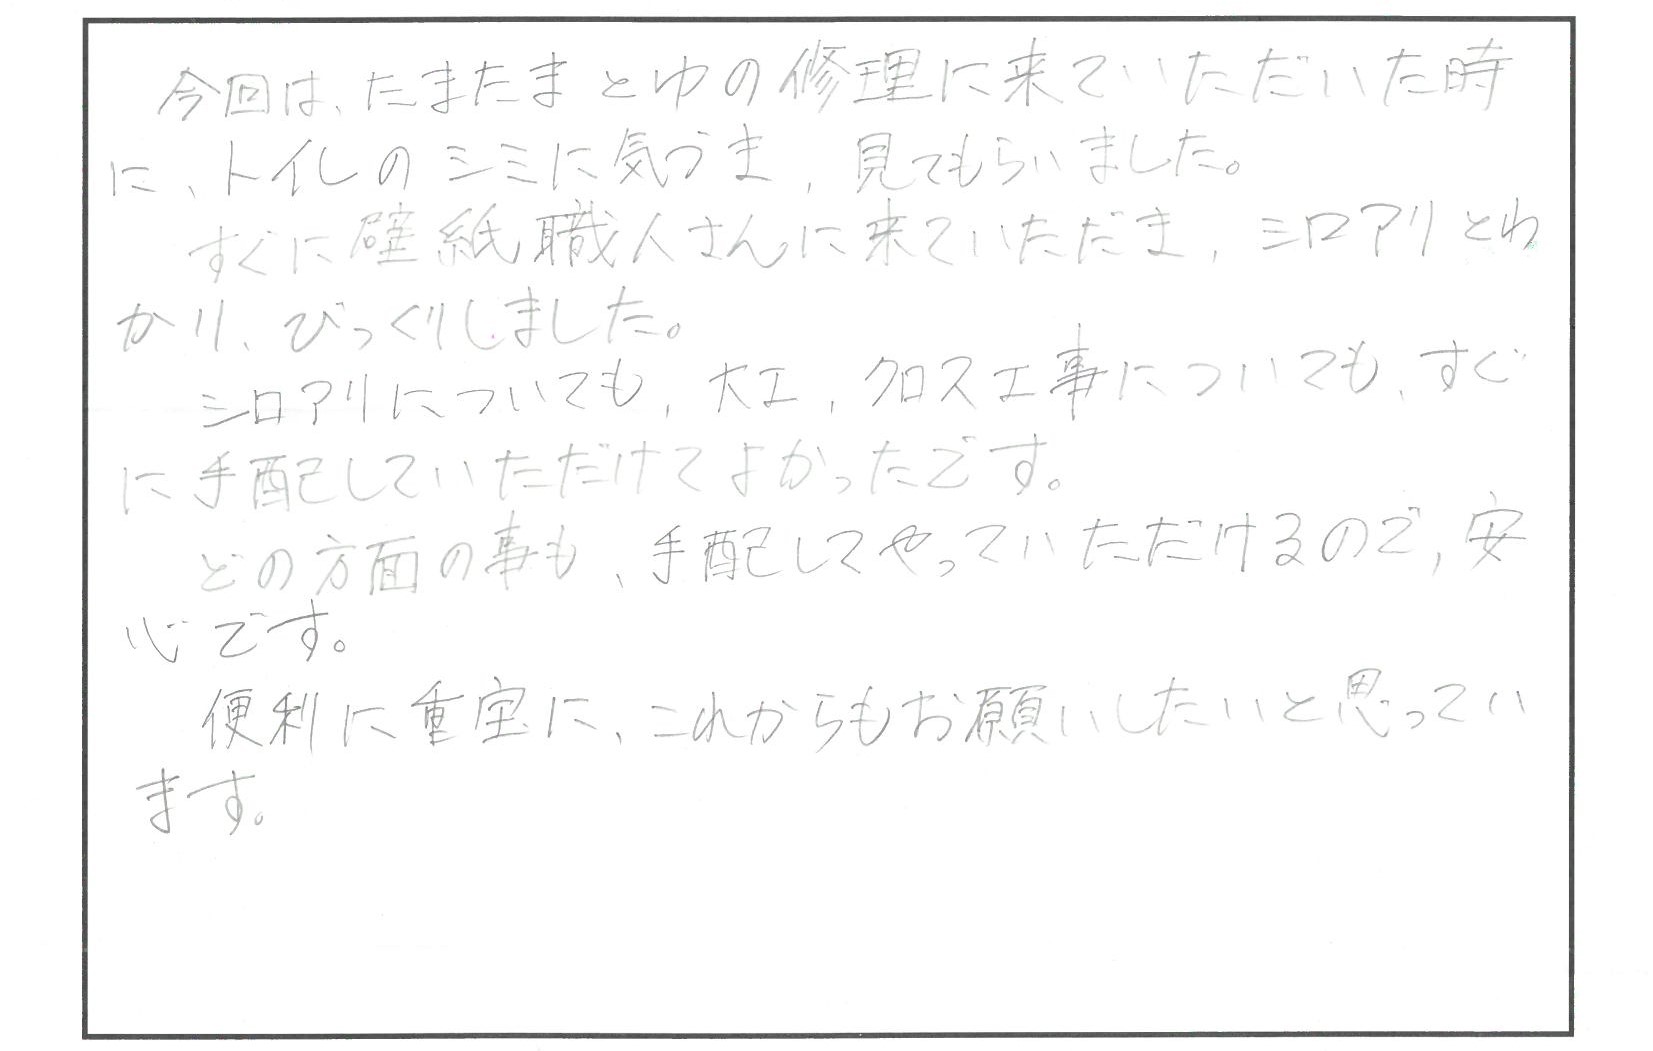 今回は、たまたまとゆの修理に来ていただいた時
に、トイレのシミに気づき、見てもらいました。
すぐに壁紙職人さんに来ていただき、シロアリとわ
かり、びっくりしました。
シロアリについても、大工、クロス工事についても、すぐ
に手配していただけてよかったです。
どの方面の事も、手配してやっていただけるので、安
心です。
便利に重宝に、これからもお願いしたいと思ってい
ます。